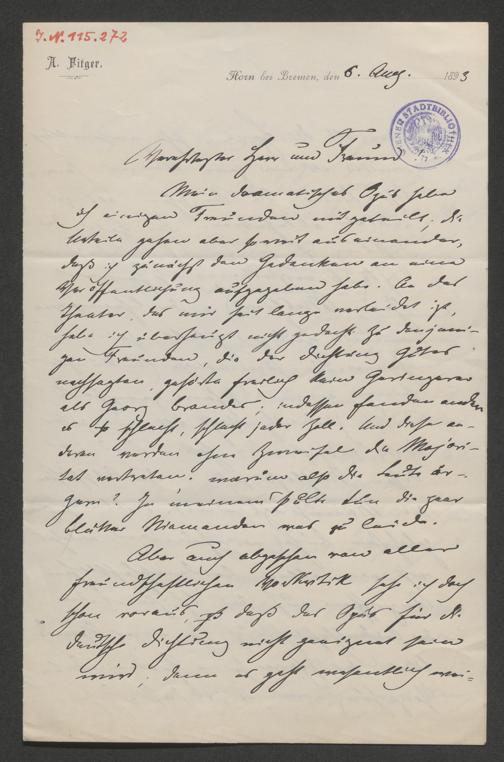 J.N. 115.272
A. Fitger.
Horn bei Bremen, den 6. Aug. 1893
Verehrtester Herr und Freund
Mein dramatisches Opus habe
ich einigen Freunden mitgeteilt, die
Urteile gehen aber so weit auseinander,
daß ich zunächst den Gedanken an eine
Veröffentlichung aufgegeben habe. An das
Theater, das mir seit lange verleidet ist,
habe ich überhaupt nicht gedacht. Zu denjeni-
gen Freunden, die der Dichtung Gutes
nachsagten, gehörte freilich kein Geringerer
als Georg Brandes; indessen fanden andere
es schlecht, schlecht jeder Zoll. Und diese an-
deren werden ohne Zweifel die Majori-
tät vertreten. Warum also die Leute är-
gern? In meinem Pulte thun die paar
Blätter Niemanden was zu leide.
Aber auch abgesehen von aller
freundschaftlichen Vorkritik sehe ich doch
schon voraus, daß das Opus für die
deutsche Dichtung nicht geeignet sein
wird; denn es geht wesentlich